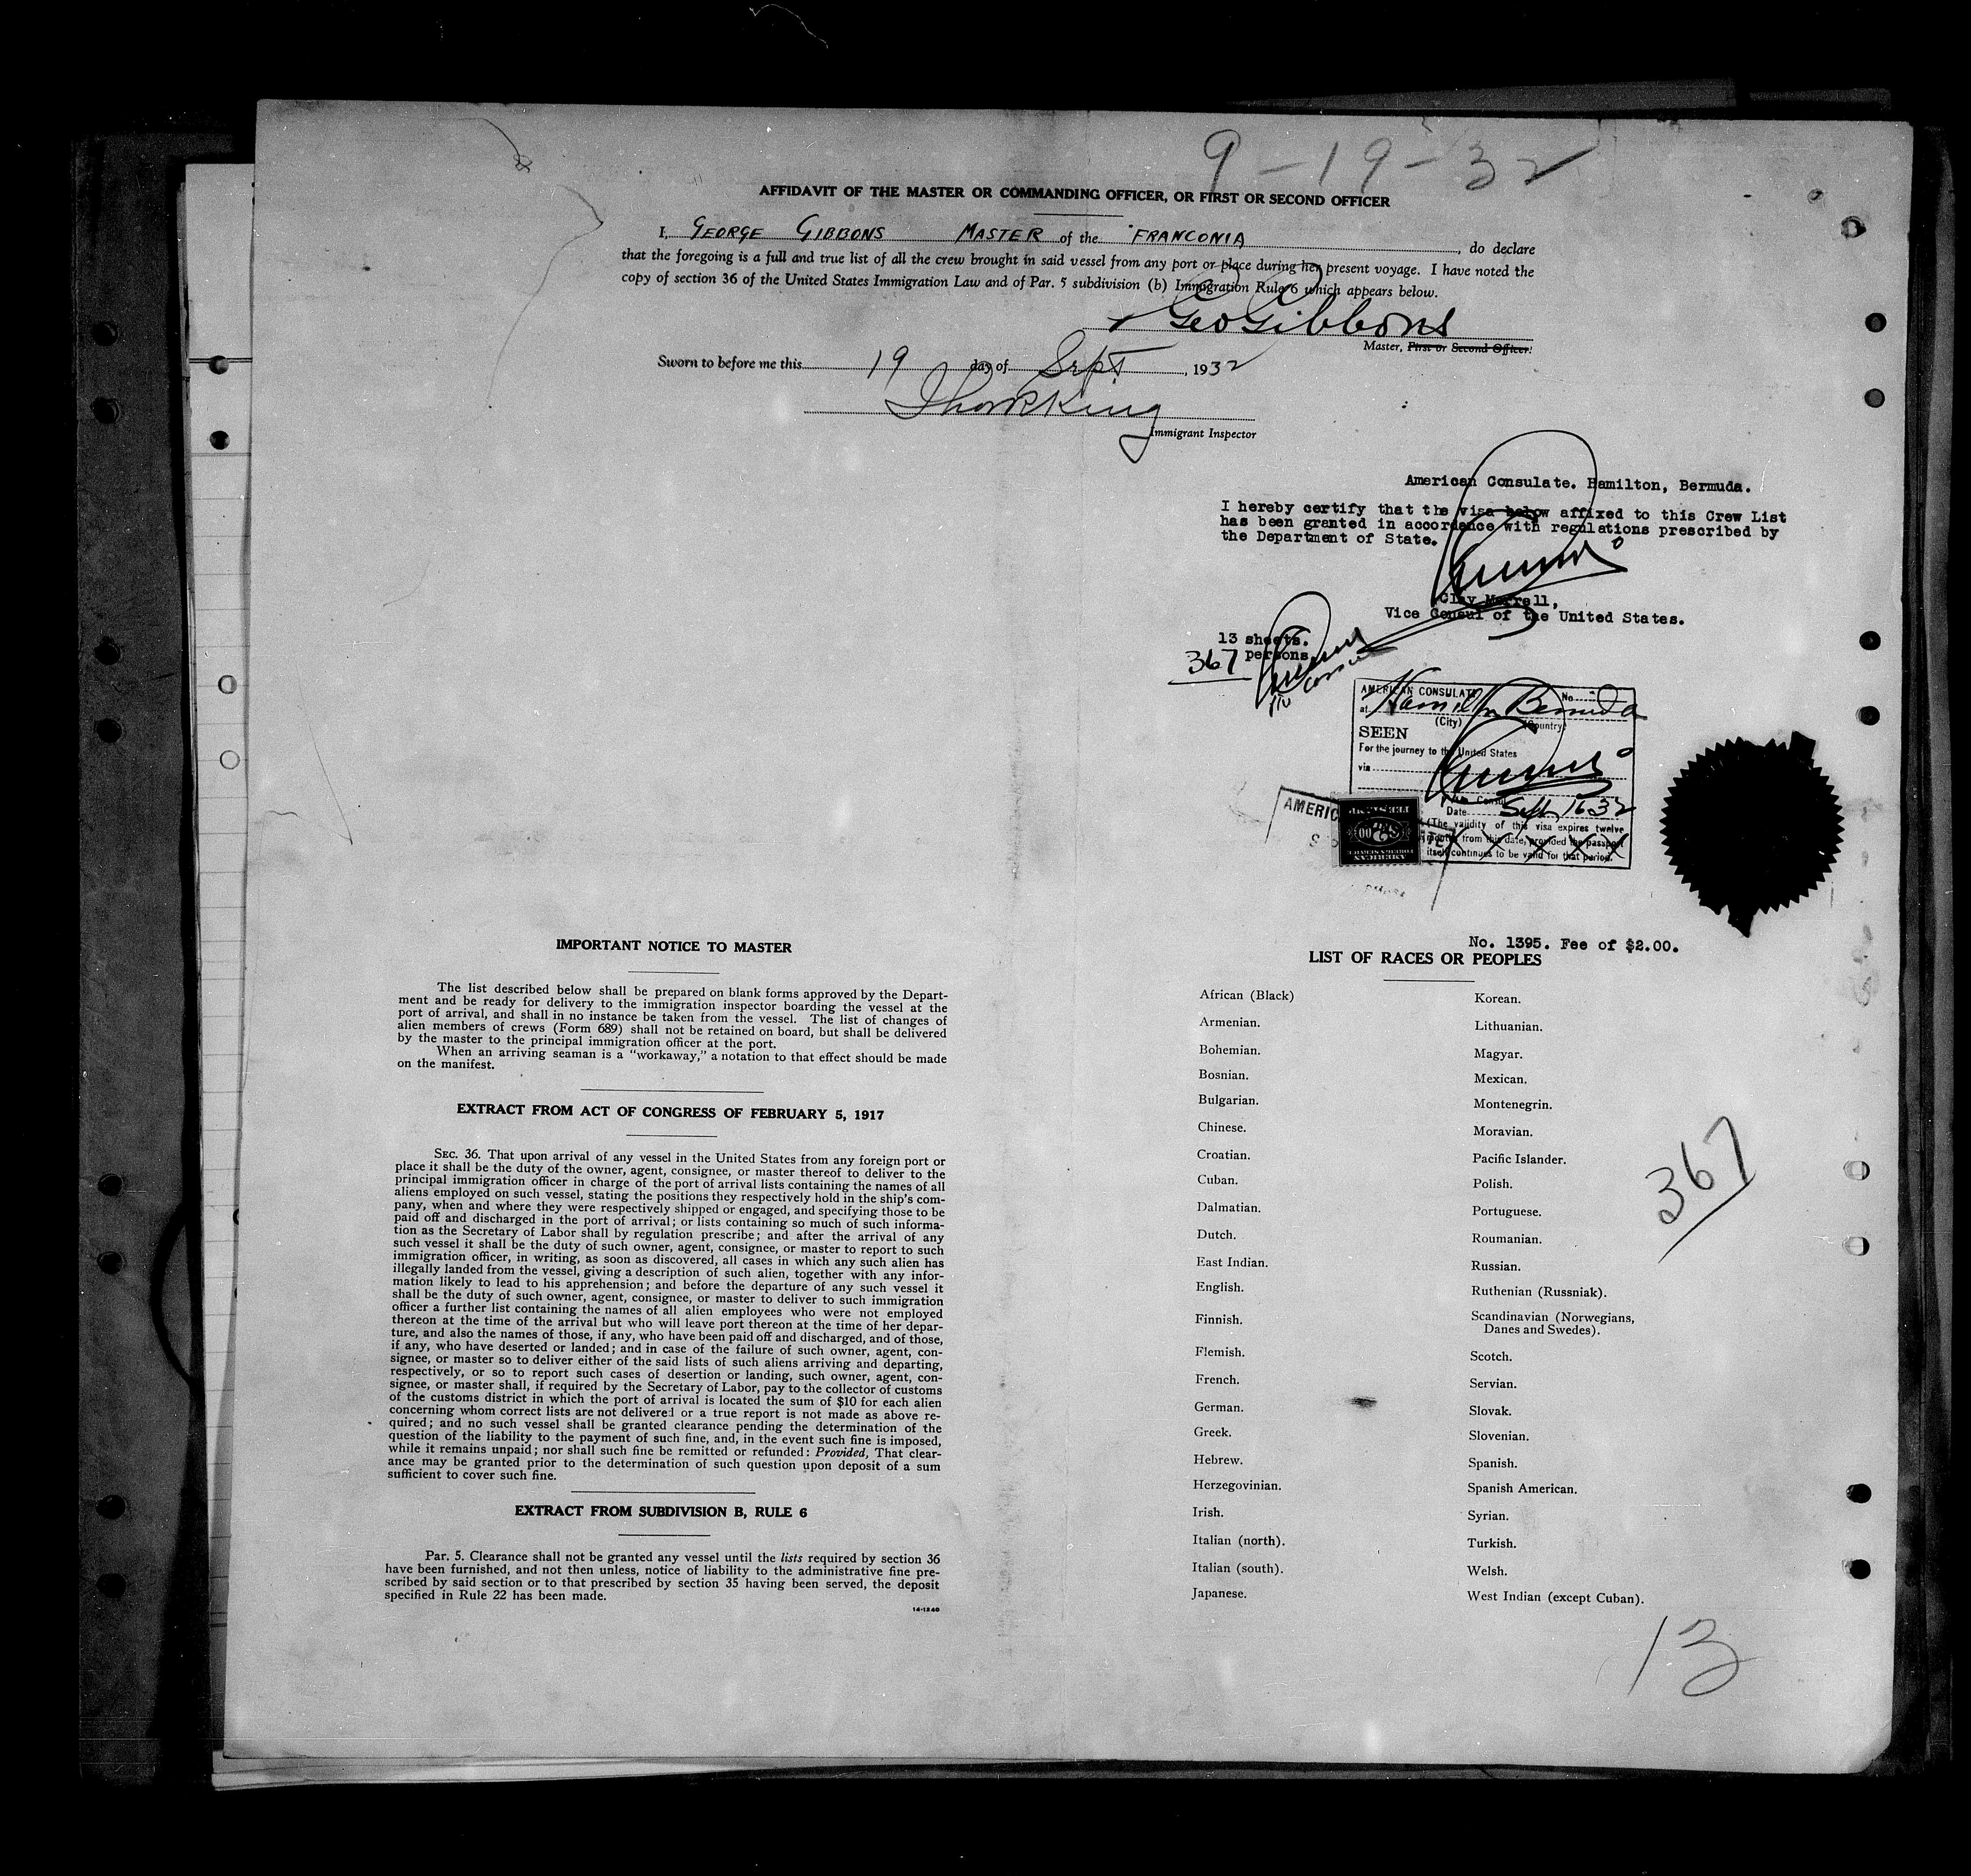 9-19-32
AFFIDAVIT OF THE MASTER OR COMMANDING OFFICER, OR FIRST OR SECOND OFFICER
I, GEORGE GIBBONS MASTER of the FRANCONIA, do declare
that the foregoing is a full and true list of all the crew brought in said vessel from any port or place during her present voyage. I have noted the
copy of section 36 of the United States Immigration Law and of Par. 5 subdivision (b) Immigration Rule 6 which appears below.
Geo Gibbons
Master, First or Second Officer.
Sworn to before me this 19 day of Sept, 1932
King
Immigrant Inspector
American Consulate. Hamilton, Bermuda.
I hereby certify that the visa below affixed to this Crew List
has been granted in accordance with regulations prescribed by
the Department of State.
Clay Merrell,
Vice Consul of the United States.
13 sheets.
367 persons
AMERICAN CONSULATE No.
at Hamilton Bermuda
(City) (Country)
SEEN
For the journey to the United States
via
Vice Consul
Date Sept. 16 32
(The validity of this visa expires twelve
months from this date, provided the passport
itself continues to be valid for that period.
No. 1395. Fee of $2.00.
IMPORTANT NOTICE TO MASTER
The list described below shall be prepared on blank forms approved by the Depart-
ment and be ready for delivery to the immigration inspector boarding the vessel at the
port of arrival, and shall in no instance be taken from the vessel. The list of changes of
alien members of crews (Form 689) shall not be retained on board, but shall be delivered
by the master to the principal immigration officer at the port.
When an arriving seaman is a "workaway," a notation to that effect should be made
on the manifest.
EXTRACT FROM ACT OF CONGRESS OF FEBRUARY 5, 1917
SEC. 36. That upon arrival of any vessel in the United States from any foreign port or
place it shall be the duty of the owner, agent, consignee, or master thereof to deliver to the
principal immigration officer in charge of the port of arrival lists containing the names of all
aliens employed on such vessel, stating the positions they respectively hold in the ship's com-
pany, when and where they were respectively shipped or engaged, and specifying those to be
paid off and discharged in the port of arrival; or lists containing so much of such informa-
tion as the Secretary of Labor shall by regulation prescribe; and after the arrival of any
such vessel it shall be the duty of such owner, agent, consignee, or master to report to such
immigration officer, in writing, as soon as discovered, all cases in which any such alien has
illegally landed from the vessel, giving a description of such alien, together with any infor-
mation likely to lead to his apprehension; and before the departure of any such vessel it
shall be the duty of such owner, agent, consignee, or master to deliver to such immigration
officer a further list containing the names of all alien employees who were not employed
thereon at the time of the arrival but who will leave port thereon at the time of her depar-
ture, and also the names of those, if any, who have been paid off and discharged, and of those,
if any, who have deserted or landed; and in case of the failure of such owner, agent, con-
signee, or master so to deliver either of the said lists of such aliens arriving and departing,
respectively, or so to report such cases of desertion or landing, such owner, agent, con-
signee, or master shall, if required by the Secretary of Labor, pay to the collector of customs
of the customs district in which the port of arrival is located the sum of $10 for each alien
concerning whom correct lists are not delivered or a true report is not made as above re-
quired; and no such vessel shall be granted clearance pending the determination of the
question of the liability to the payment of such fine, and, in the event such fine is imposed,
while it remains unpaid; nor shall such fine be remitted or refunded: Provided, That clear-
ance may be granted prior to the determination of such question upon deposit of a sum
sufficient to cover such fine.
EXTRACT FROM SUBDIVISION B, RULE 6
Par. 5. Clearance shall not be granted any vessel until the lists required by section 36
have been furnished, and not then unless, notice of liability to the administrative fine pre-
scribed by said section or to that prescribed by section 35 having been served, the deposit
specified in Rule 22 has been made.
14-1240
LIST OF RACES OR PEOPLES
African (Black)
Armenian.
Bohemian.
Bosnian.
Bulgarian.
Chinese.
Croatian.
Cuban.
Dalmatian.
Dutch.
East Indian.
English.
Finnish.
Flemish.
French.
German.
Greek.
Hebrew.
Herzegovinian.
Irish.
Italian (north).
Italian (south).
Japanese.
Korean.
Lithuanian.
Magyar.
Mexican.
Montenegrin.
Moravian.
Pacific Islander.
Polish.
Portuguese.
Roumanian.
Russian.
Ruthenian (Russniak).
Scandinavian (Norwegians,
Danes and Swedes).
Scotch.
Servian.
Slovak.
Slovenian.
Spanish.
Spanish American.
Syrian.
Turkish.
Welsh.
West Indian (except Cuban).
367
13